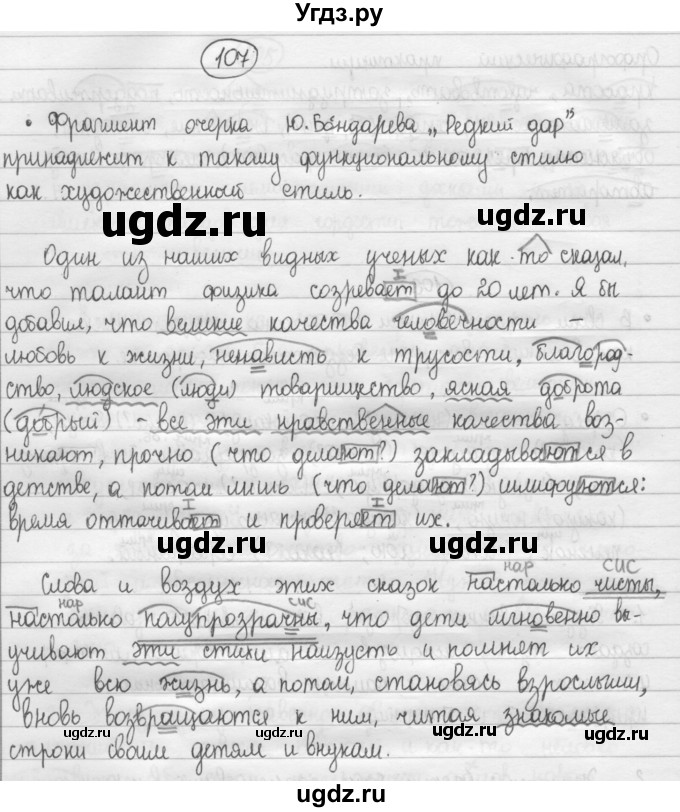 Угдз.ру
107
• Фрагмент очерка Ю. Бондарева „Редкий дар"
принадлежит к такому функциональному стилю
как художественный стиль.
ugdz.ru ugdz.ru
Один из наших видных ученых как-то сказал,
что талант физика созревает до 20 лет. Я бы
добавил, что великие качества человечности –
любовь к жизни, ненависть к трусости, благород-
ство, людское (люди) товарищество, ясная доброта
(добрый) – все эти нравственные качества воз-
никают, прочно (что делают?) закладываются в
детстве, а потом лишь (что делают?) шлифуются:
время оттачивает и проверяет их.
ugdz.ru ugdz.ru
нар СИС
Слова и воздух этих сказок настолько чисты,
нар СИС
настолько полупрозрачны, что дети мгновенно вы-
учивают эти стихи наизусть и помнят их
уже всю жизнь, а потом, становясь взрослыми,
вновь возвращаются к ним, читая знакомые
ugdz.ru ugdz.ru
строки своим детям и внукам.
ugdz.ru